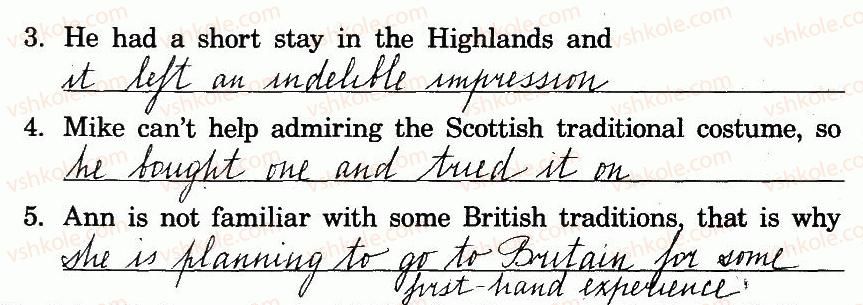 3. He had a short stay in the Highlands and
it left an indelible impression
4. Mike can't help admiring the Scottish traditional costume, so
he bought one and tried it on
5. Ann is not familiar with some British traditions, that is why
she is planning to go to Britain for some
first-hand experience.